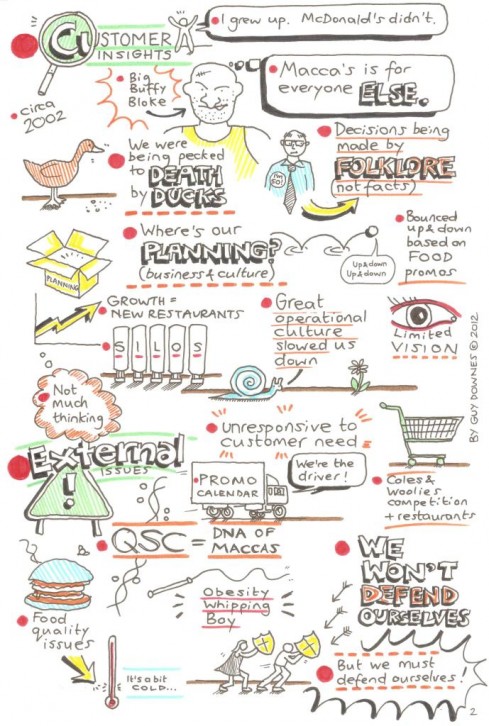 CUSTOMER
INSIGHTS
I grew up. McDonald's didn't.
circa
2002
Big
Buffy
Bloke
Macca's is for
everyone ELSE.
We were
being pecked
to DEATH
by DUCKS
Decisions being
made by
FOLKLORE
(not facts)
PLANNING
Where's our
PLANNING?
(business & culture)
Up & down
Up & down
Bounced
up & down
based on
FOOD
promos
GROWTH =
NEW RESTAURANTS
SILOS
Great
operational
culture
slowed us
down
Limited
VISION
BY GUY DOWNES © 2012
Not
much
thinking
Unresponsive to
customer need
External
ISSUES
!
PROMO
CALENDAR
We're the
driver!
Coles &
Woolies
competition
+ restaurants
QSC = DNA OF
MACCAS
Food
quality
issues
Obesity
Whipping
Boy
WE
WON'T
DEFEND
OURSELVES
It's a bit
COLD...
But we must
defend ourselves!
2